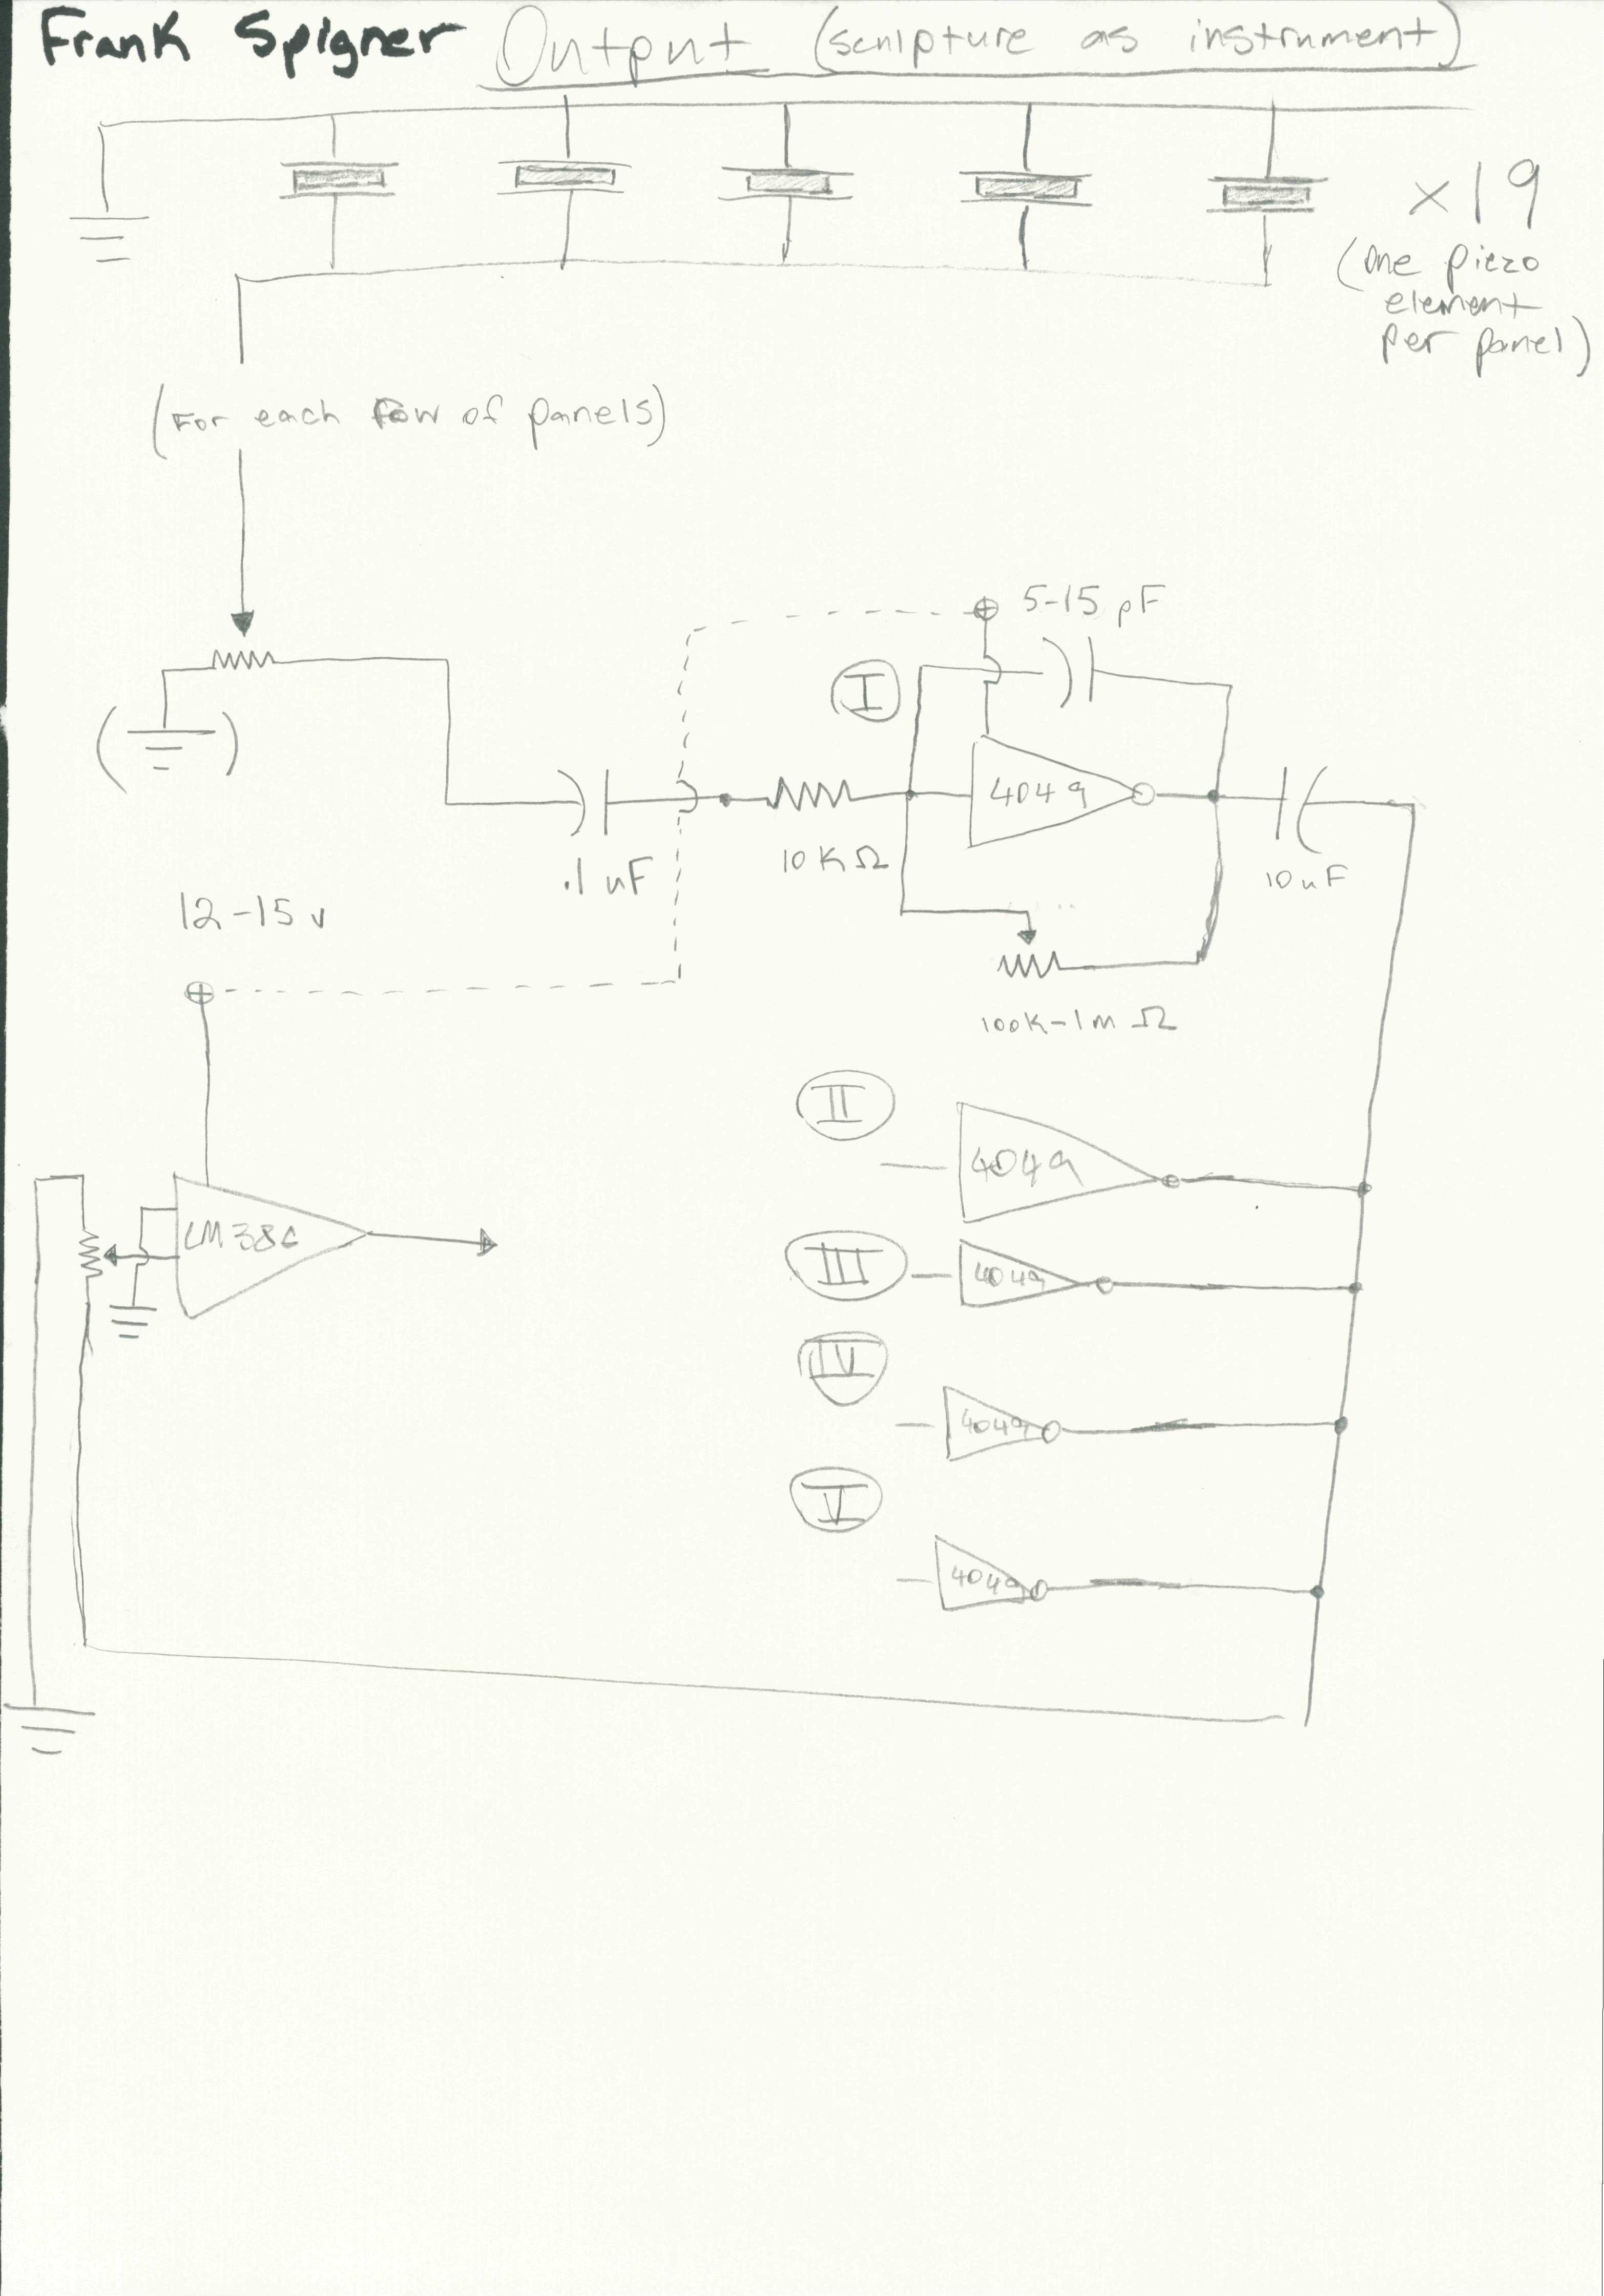 Frank Spigner Output (sculpture as instrument)
x19
(one piezo
element
per panel)
(For each row of panels)
5-15 pF
I
4049
.1 uF
10K Ω
10 uF
12-15 v
100K-1m Ω
II
4049
LM386
III
4049
IV
4049
V
4049